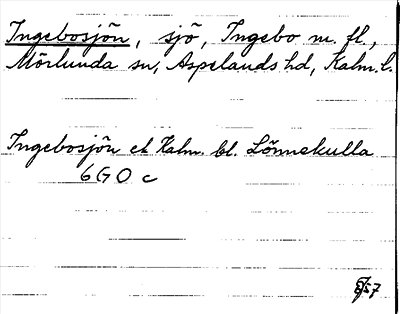 Ingebosjön, sjö, Ingebo m. fl.,
Mörlunda sn, Aspelands hd, Kalm. l.
Ingebosjön ek Kalm. bl. Lönnekulla
6G0c